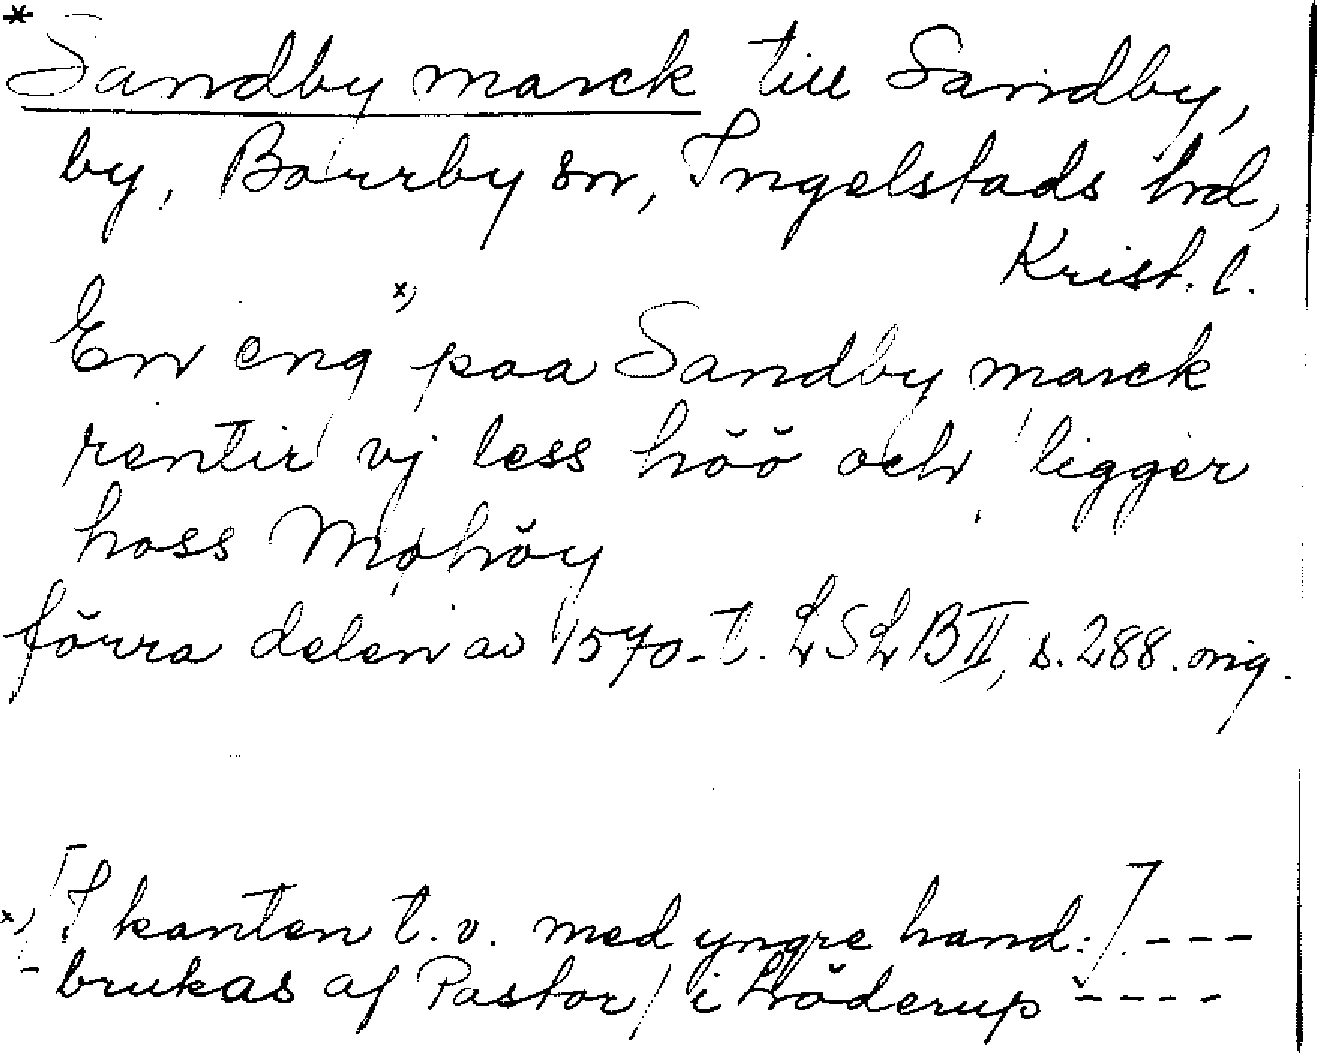 * Sandby marck till Sandby,
by, Borrby sn, Ingelstads hrd,
Krist. l.
En eng x) paa Sandby marck
rentir vj less höö och ligger
hoss Mohöy
förra delen av 1570-t. LSLB II, s. 288. orig.
x) [I kanten t.v. med yngre hand:] ---
- brukas af Pastor / i Löderup ----